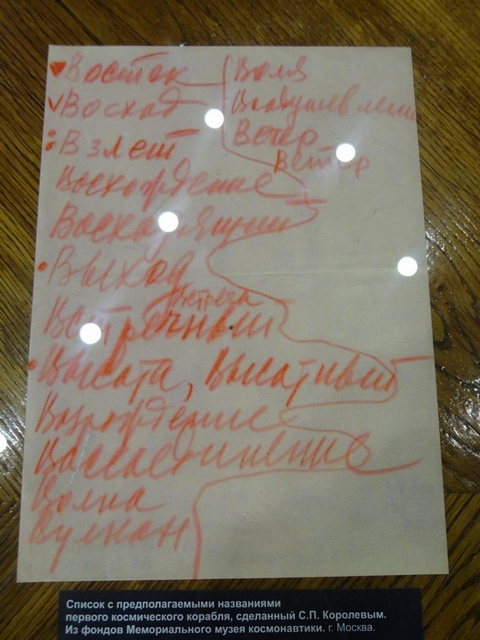 Восток
Восход
Взлет
Восхождение
Восходящий
Выход
Встреча
Встречный
Высота, Высотный
Возрождение
Воссоединение
Волна
Вулкан
Воля
Воодушевление
Ветер
Ветер
Список с предполагаемыми названиями
первого космического корабля, сделанный С.П. Королевым.
Из фондов Мемориального музея космонавтики. г. Москва.